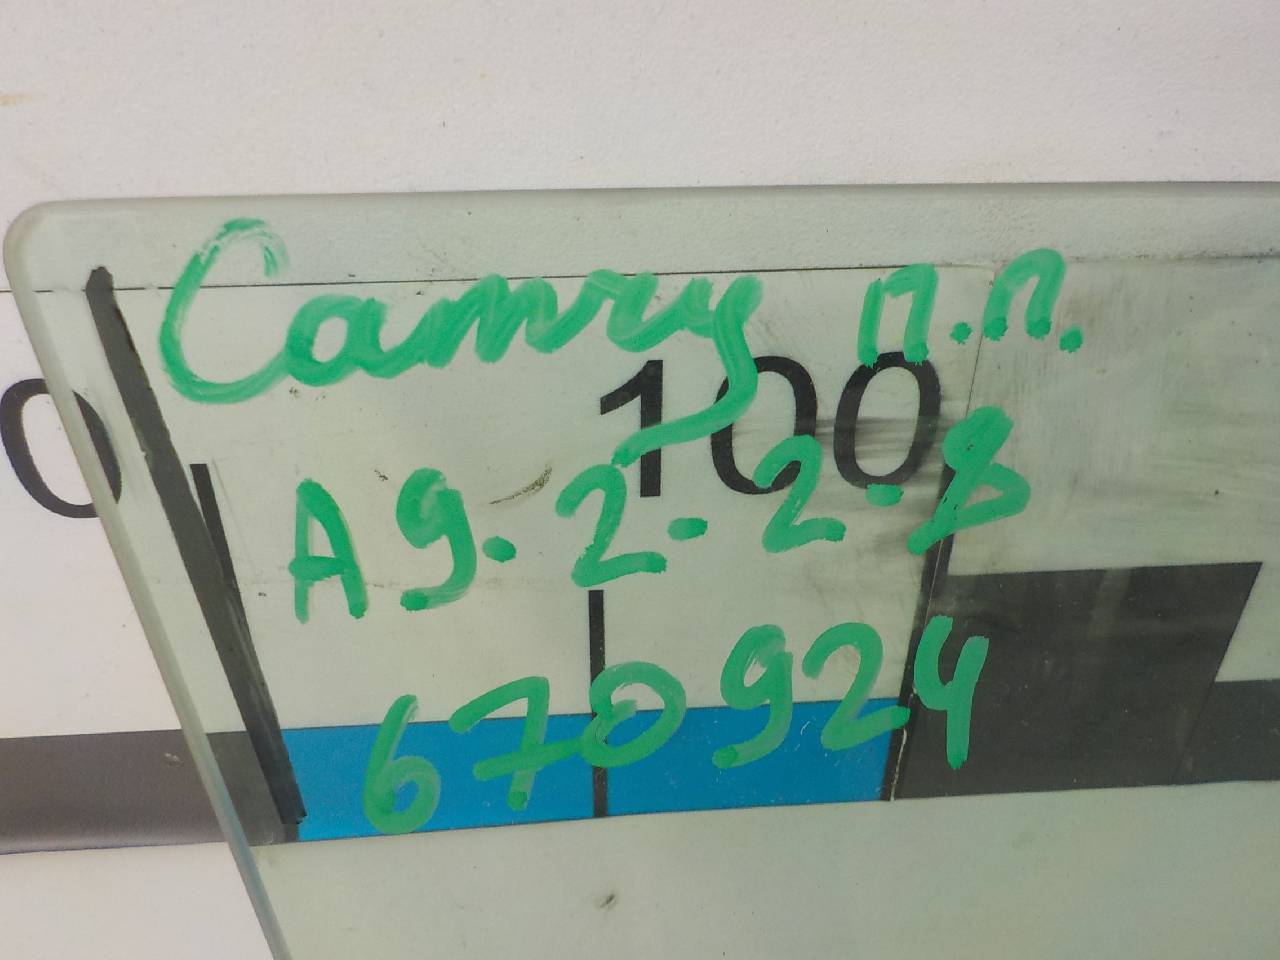 Camry п.п.
0 100
A9-2-2-8
670924